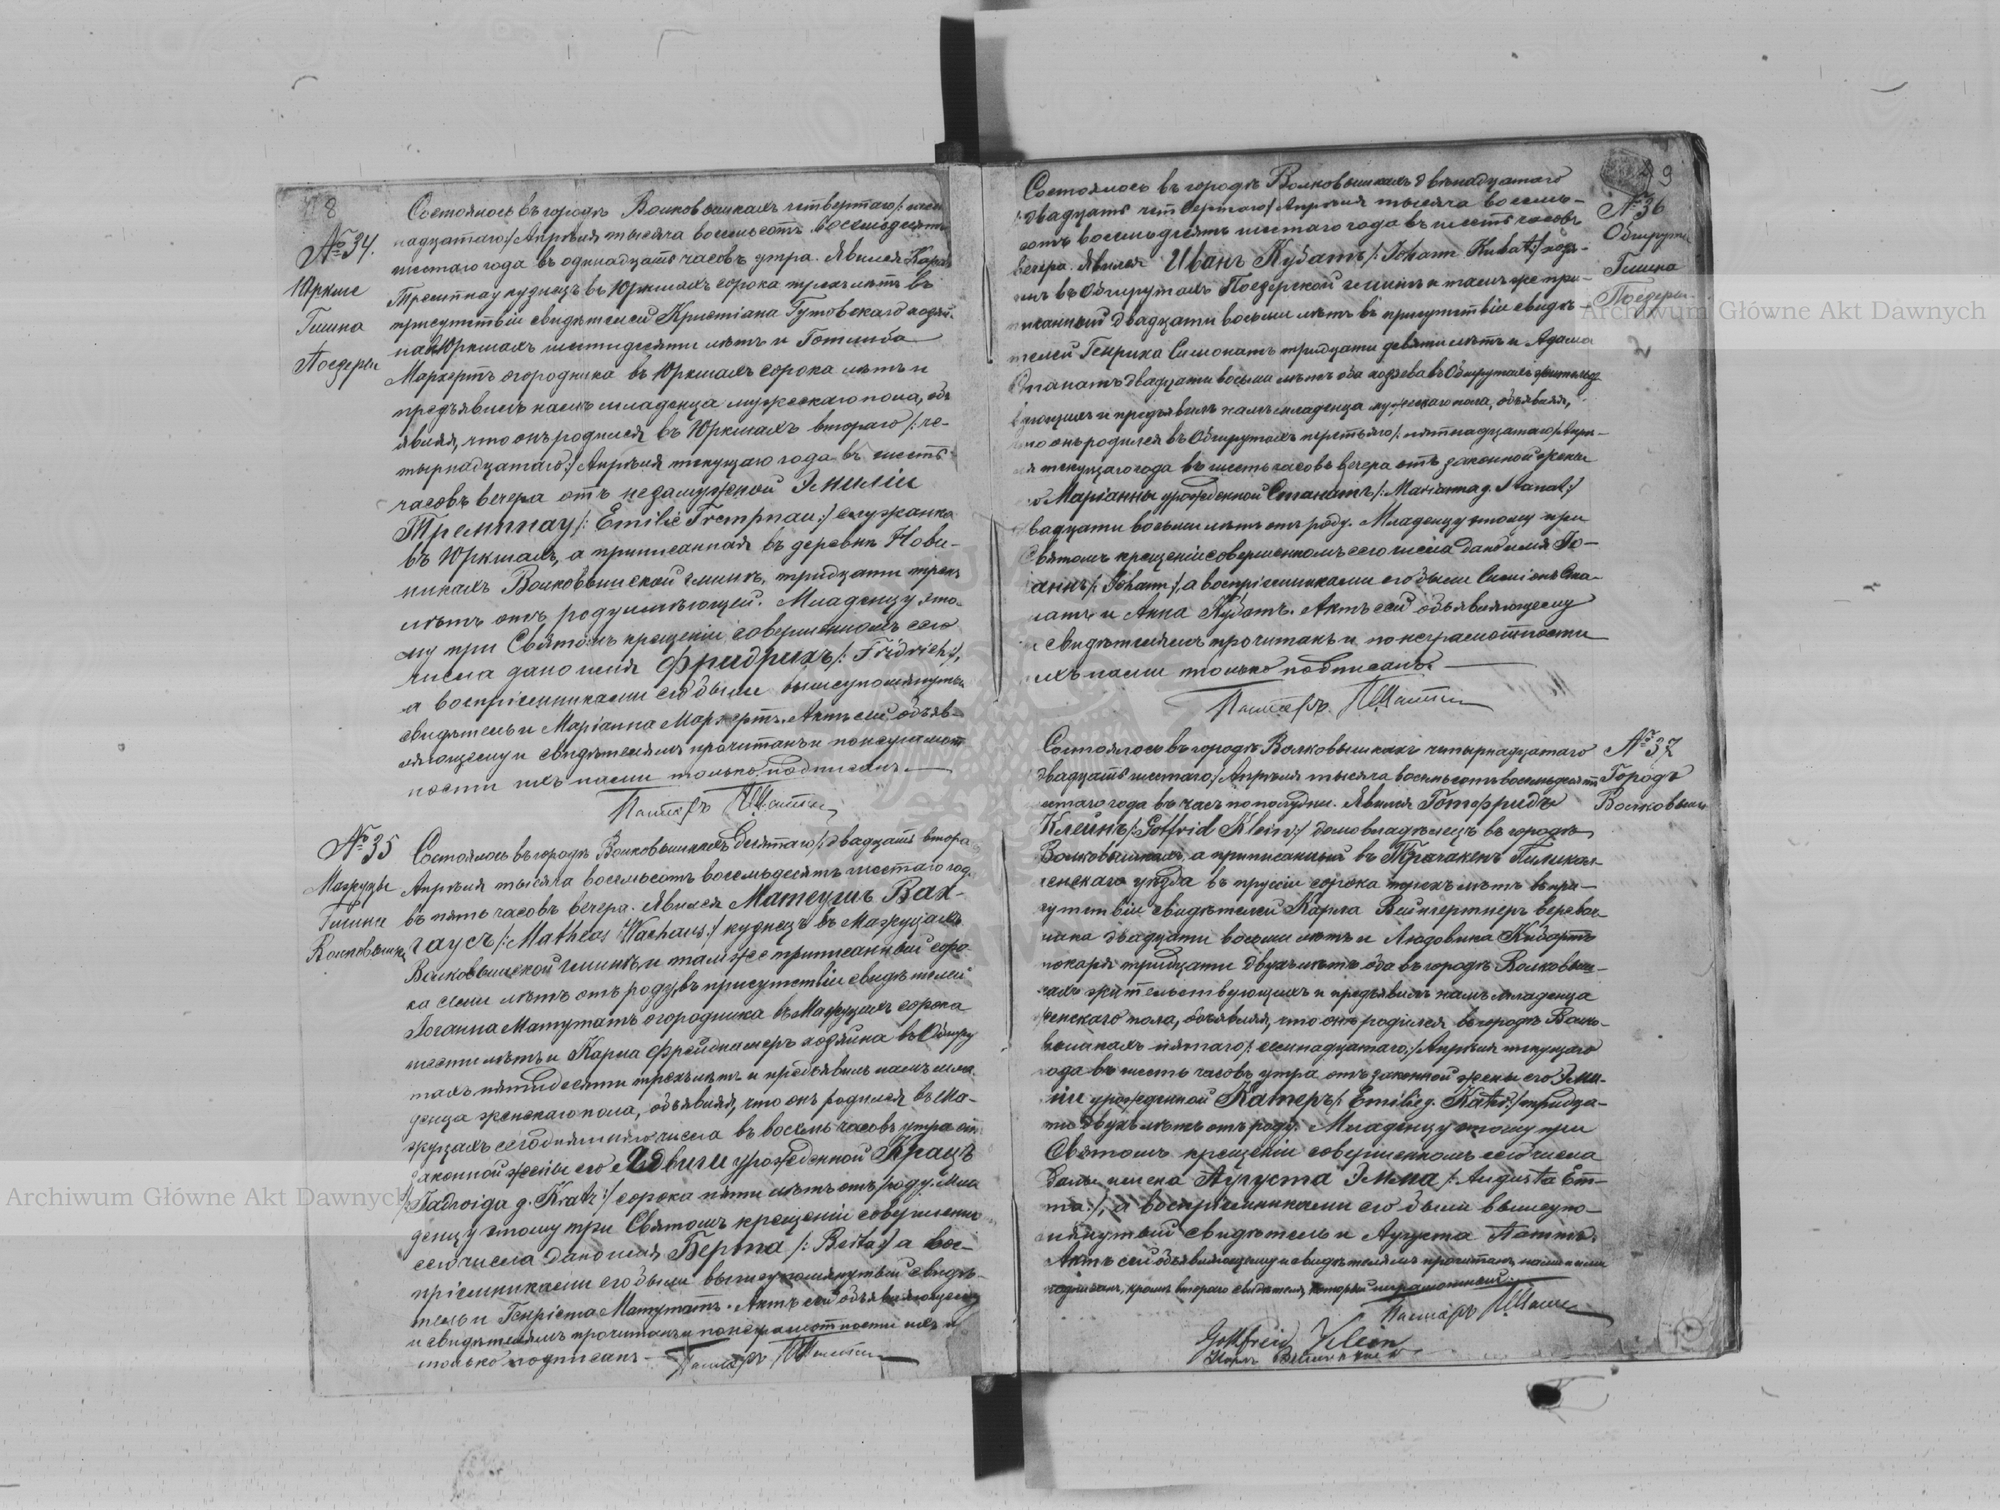 8
№ 34.
Юркше
Гмина
Посдеры
Состоялось въ городѣ Волковышкахъ четвертаго /: шест-
надцатаго :/ Апрѣля тысяча восемьсотъ восемьдесятъ
шестаго года въ одинадцать часовъ утра. Явился Карл
Тремпнау кузнецъ въ Юркшахъ сорока трехъ лѣтъ въ
присутствіи свидѣтелей Кристіана Гутовскаго хозяи-
на въ Юркшахъ шестидесяти лѣтъ и Готлиба
Маркертъ огородника въ Юркшахъ сорока лѣтъ и
предъявилъ намъ младенца мужескаго пола, объ
являя, что онъ родился въ Юркшахъ втораго /: че-
тырнадцатаго :/ Апрѣля текущаго года въ шесть
часовъ вечера отъ незамужной Эмиліи
Тремпнау /: Emilie Trempnau :/ служанка
въ Юркшахъ, а приписанная въ деревнѣ Нови-
никахъ Волковышской гминѣ, тридцати трехъ
лѣтъ отъ роду имѣющей. Младенцу это-
му при Святомъ крещеніи совершенномъ сего
числа дано имя Фридрихъ /: Fridrich :/,
а воспріемниками его были вышеупомянутые
свидѣтель и Маріанна Маркертъ. Актъ сей объяв-
ляющему и свидѣтелямъ прочитанъ и по неграмот
ности ихъ нами только подписанъ.
Пасторъ
№ 35
Мажуцы
Гмина
Волковышк
Состоялось въ городѣ Волковышкахъ десятаго /: двадцать втора
Апрѣля тысяча восемьсотъ восемьдесятъ шестаго год.
въ пять часовъ вечера. Явился Матеушъ Вах-
гаусъ /: Matheas Wachaus :/ кузнецъ въ Мажуцахъ
Волковышской гминѣ и тамъ же приписанный соро
ка семи лѣтъ отъ роду, въ присутствіи свидѣтелей
Іоганна Матутатъ огородника въ Мажуцахъ сорока
шести лѣтъ и Карла Фрейдкамеръ хозяина въ Обшру
тахъ пятидесяти трехъ лѣтъ и предъявилъ намъ мла
денца женскаго пола, объявляя, что онъ родился въ Ма-
жуцахъ сегоднишняго числа въ восемь часовъ утра от
законной жены его Ядвиги урожденной Крацъ
/: Jadwiga g. Kratz :/ сорока пяти лѣтъ отъ роду. Мла
денцу этому при Святомъ крещеніи совершенно
сего числа дано имя Берта /: Berta :/ а вос-
пріемниками его были вышеупомянутый свидѣ-
тель и Генріета Матутатъ. Актъ сей объявляющему
и свидѣтелямъ прочитанъ и по неграмотности ихъ н
только подписанъ.
Пасторъ
9
№ 36
Обшруты
Гмина
Посдеры
Состоялось въ городѣ Волковышкахъ двѣнадцатаго
/: двадцать четвертаго :/ Апрѣля тысяча восемь-
сотъ восемьдесятъ шестаго года въ шесть часовъ
вечера. Явился Иванъ Кубатъ /: Johann Kubat :/ хозя-
инъ въ Обшрутахъ Посдерской гминѣ и тамъ же при-
писанный двадцати восьми лѣтъ въ присутствіи свидѣ-
телей Генриха Симонатъ тридцати девяти лѣтъ и Адама
двадцати восьми лѣтъ оба хозяева въ Обшрутахъ жительст
вующихъ и предъявилъ намъ младенца мужескаго пола, объявляя,
что онъ родился въ Обшрутахъ третьяго /: пятнадцатаго :/ Апрѣ-
ля текущаго года въ шесть часовъ вечера отъ законной жены
его Маріанны урожденной Станатъ /: Marianna g. Stanat :/
двадцати восьми лѣтъ отъ роду. Младенцу этому при
Святомъ крещеніи совершенномъ сего числа дано имя Іо-
ганнъ /: Johann :/, а воспріемниками его были Симіонъ Ста-
натъ и Анна Кубатъ. Актъ сей объявляющему
и свидѣтелямъ прочитанъ и по неграмотности
ихъ нами только подписанъ.
Пасторъ
№ 37
Городъ
Волковышк
Состоялось въ городѣ Волковышкахъ четырнадцатаго
/: двадцать шестаго :/ Апрѣля тысяча восемьсотъ восемьдесятъ
шестаго года въ часъ по полудни. Явился Готфридъ
Клейнъ /: Gotfrid Klein :/ домовладѣлецъ въ городѣ
Волковышкахъ, а приписанный въ Трачакенъ Пилкал-
ленскаго уѣзда въ Пруссіи сорока трехъ лѣтъ въ при-
сутствіи свидѣтелей Карла Вейнгертнеръ веревоч-
ника двадцати восьми лѣтъ и Людовика Кибартъ
пекаря тридцати двухъ лѣтъ оба въ городѣ Волковыш-
кахъ жительствующихъ и предъявилъ намъ младенца
женскаго пола, объявляя, что онъ родился въ городѣ Волко-
вышкахъ пятаго /: семнадцатаго :/ Апрѣля текущаго
года въ шесть часовъ утра отъ законной жены его Эми-
ліи урожденной Катеръ /: Emilie g. Kater :/ тридца-
ти двухъ лѣтъ отъ роду. Младенцу этому при
Святомъ крещеніи совершенномъ сего числа
даны имена Августа Эмма /: Augusta Em-
ma :/, а воспріемниками его были вышеупо-
мянутый свидѣтель и Августа
Актъ сей объявляющему и свидѣтелямъ прочитанъ, нами и ими
подписанъ, кромѣ втораго свидѣтеля который неграмотный.
Пасторъ
Gottfreid Klein
Archiwum Główne Akt Dawnych
Archiwum Główne Akt Dawnych